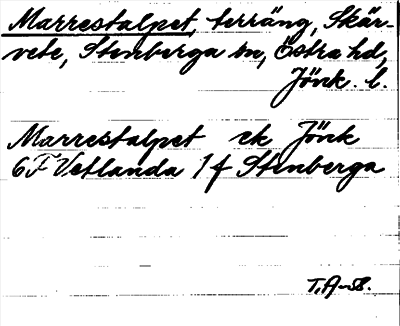 Marrestalpet, terräng, Skär-
vete, Stenberga sn, Östra hd,
Jönk. l.
Marrestalpet ek Jönk
6F Vetlanda 1f Stenberga
T.A-58.